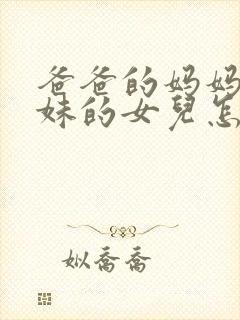 爸爸的妈妈
妹的女兒怎
姒喬喬